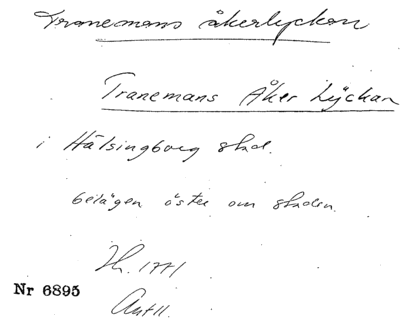 Tranemans åkerlyckan
Tranemans Åker Lÿckan
i Hälsingborg stad.
belägen öster om staden.
Hr. 1771
Nr 6895
Ant 11.